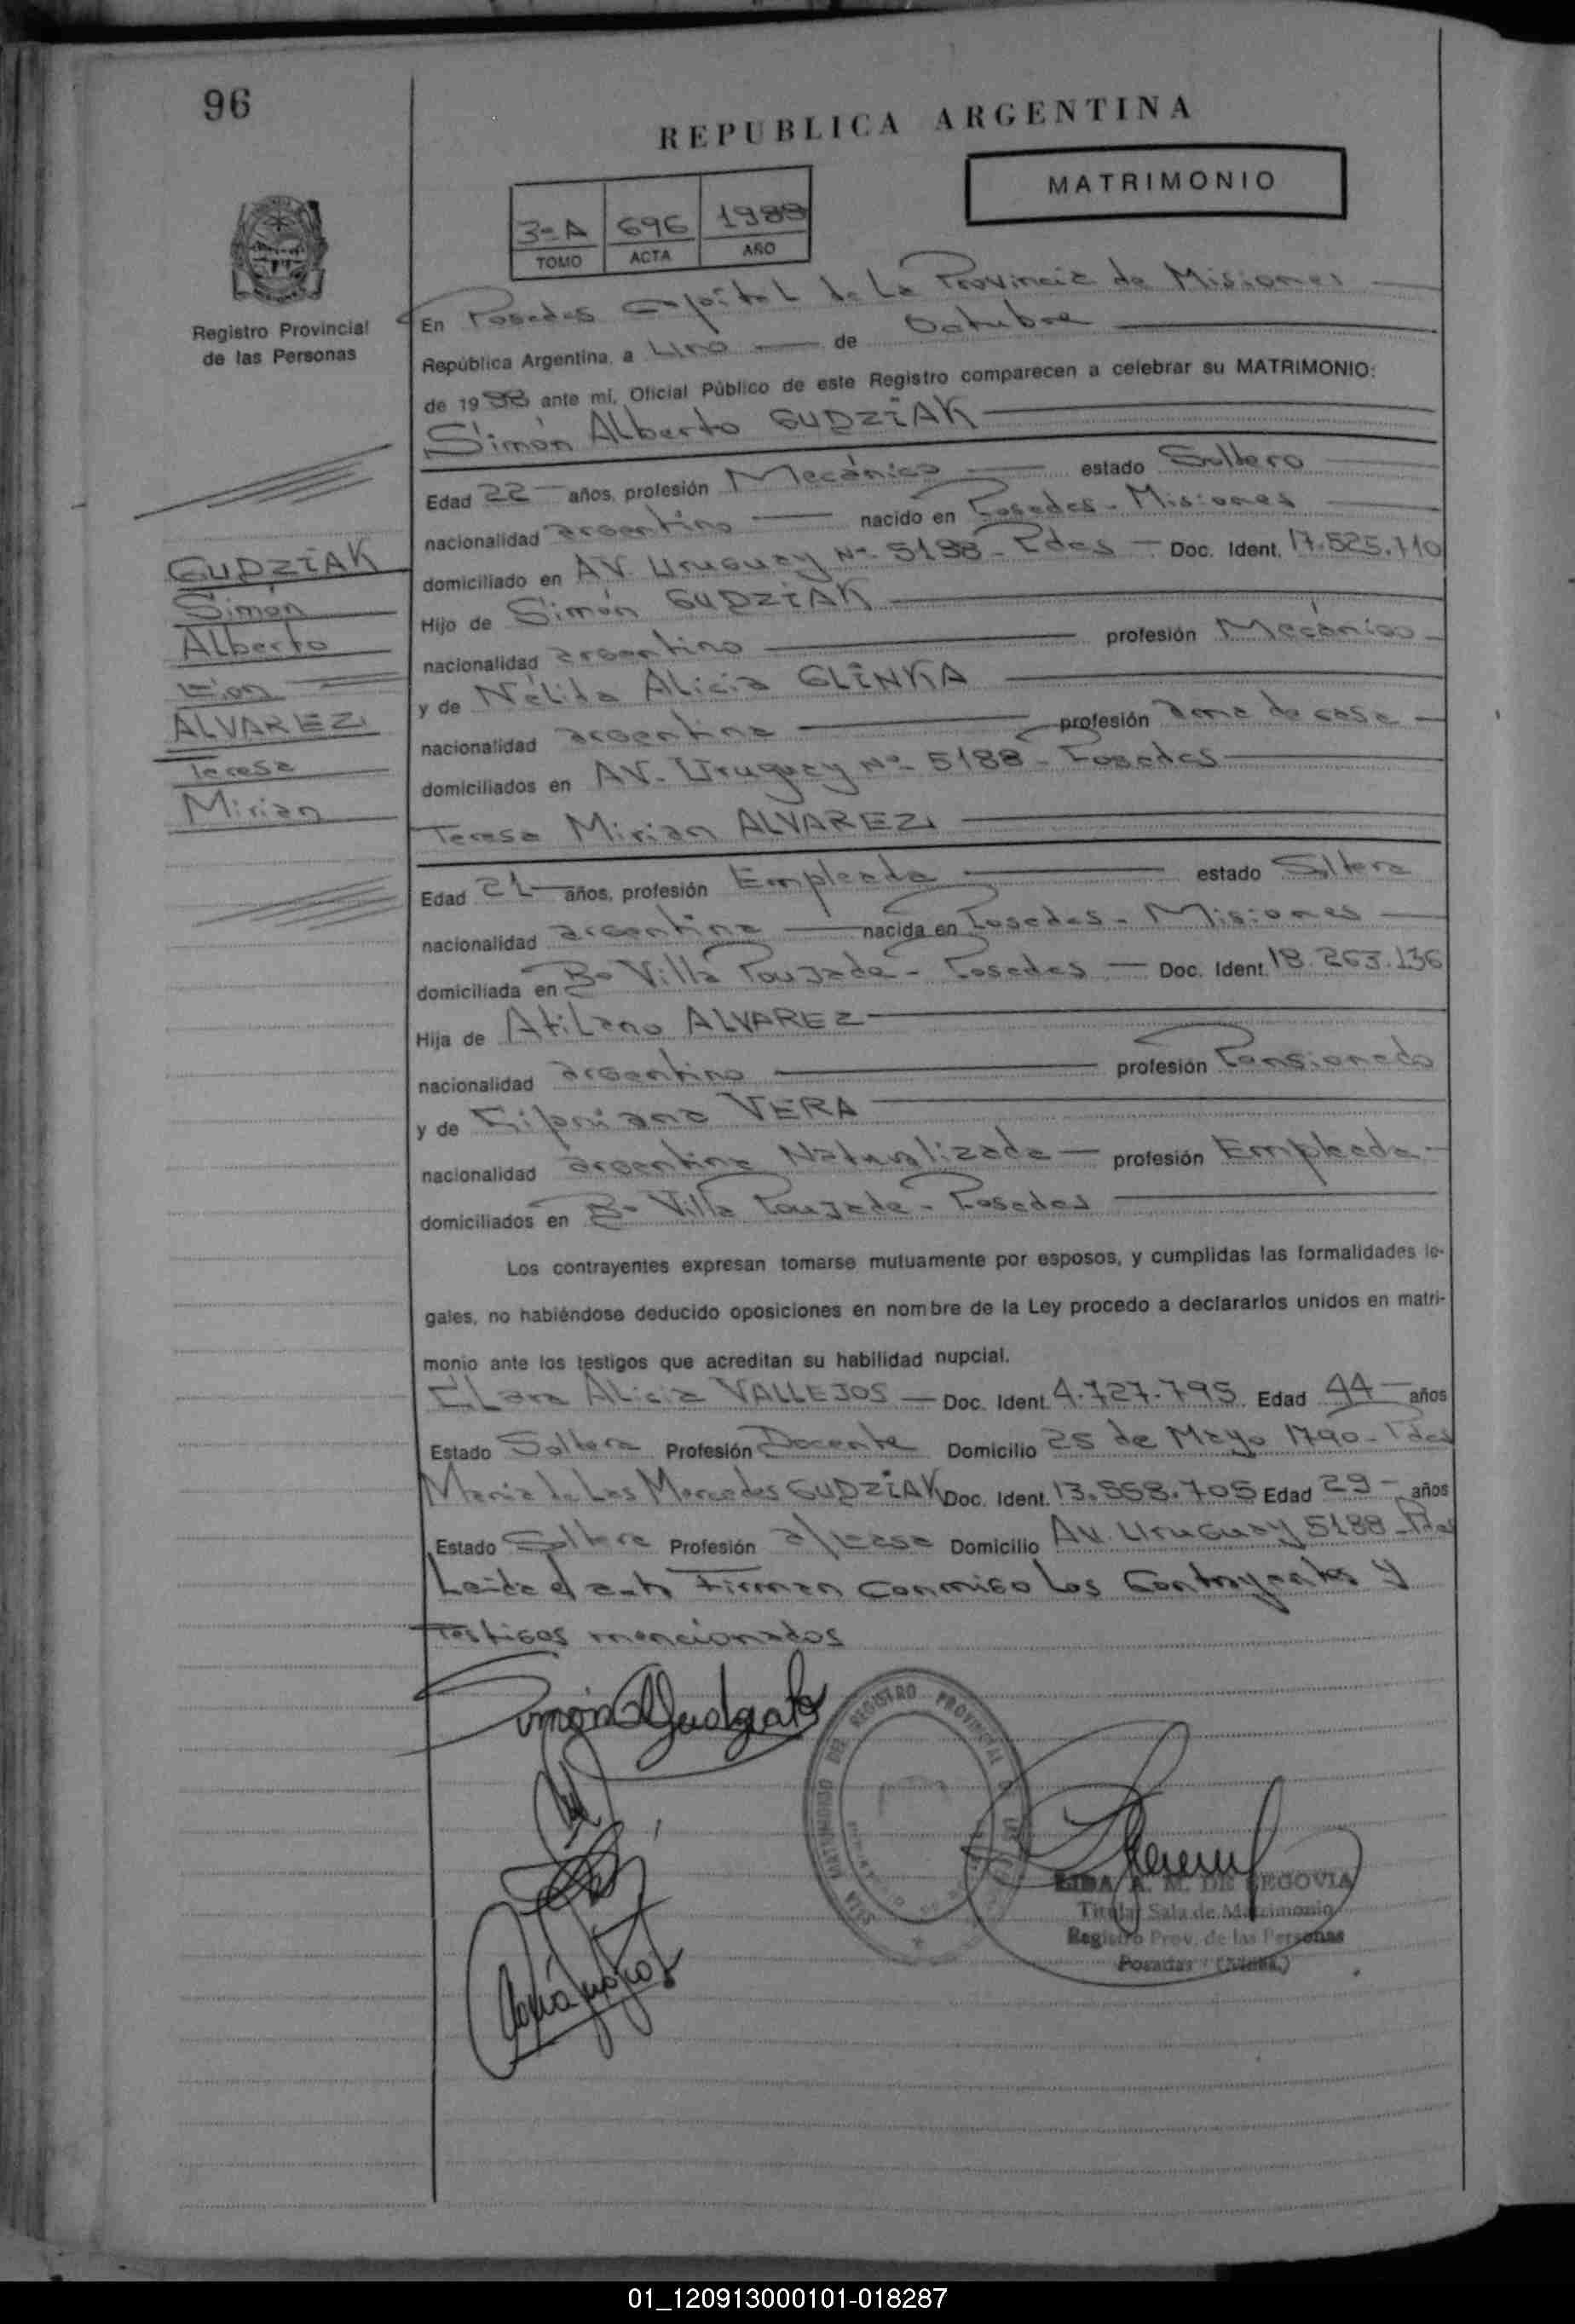 96
REPUBLICA ARGENTINA
MATRIMONIO
3º A 696 1988
TOMO ACTA AÑO
Registro Provincial
de las Personas
En Posadas Capital de La Provincia de Misiones
República Argentina, a Uno de Octubre
de 1988 ante mí, Oficial Público de este Registro comparecen a celebrar su MATRIMONIO:
Simón Alberto GUDZIAK
Edad 22 años, profesión Mecánico estado Soltero
nacionalidad argentino nacido en Posadas - Misiones
domiciliado en AV. Uruguay Nº 5188 - Pdas Doc. Ident. 17.525.710
Hijo de Simón GUDZIAK
nacionalidad argentino profesión Mecánico
y de Nélida Alicia GLINKA
nacionalidad argentina profesión ama de casa
domiciliados en AV. Uruguay Nº 5188 - Posadas
Teresa Mirian ALVAREZ
Edad 21 años, profesión Empleada estado Soltera
nacionalidad argentina nacida en Posadas - Misiones
domiciliada en Bº Villa Poujade - Posadas Doc. Ident. 18.263.136
Hija de Atilano ALVAREZ
nacionalidad argentino profesión Pensionado
y de Cipriana VERA
nacionalidad argentina Naturalizada profesión Empleada
domiciliados en Bº Villa Poujade - Posadas
GUDZIAK
Simón
Alberto
con
ALVAREZ
Teresa
Mirian
Los contrayentes expresan tomarse mutuamente por esposos, y cumplidas las formalidades le-
gales, no habiéndose deducido oposiciones en nombre de la Ley procedo a declararlos unidos en matri-
monio ante los testigos que acreditan su habilidad nupcial.
Clara Alicia VALLEJOS Doc. Ident. 4.727.795 Edad 44 años
Estado Soltera Profesión Docente Domicilio 25 de Mayo 1790 - Pdas
Maria de Las Mercedes GUDZIAK Doc. Ident. 13.558.705 Edad 29 años
Estado Soltera Profesión a/casa Domicilio AV. Uruguay 5188 - Pdas
Leida el acta Firman conmigo Los Contrayentes y
Testigos mencionados
SALA MATRIMONIO DEL REGISTRO PROVINCIAL
LIDA A. M. DE SEGOVIA
Titular Sala de Matrimonio
Registro Prov. de las Personas
Posadas (Mnes.)
01_120913000101-018287